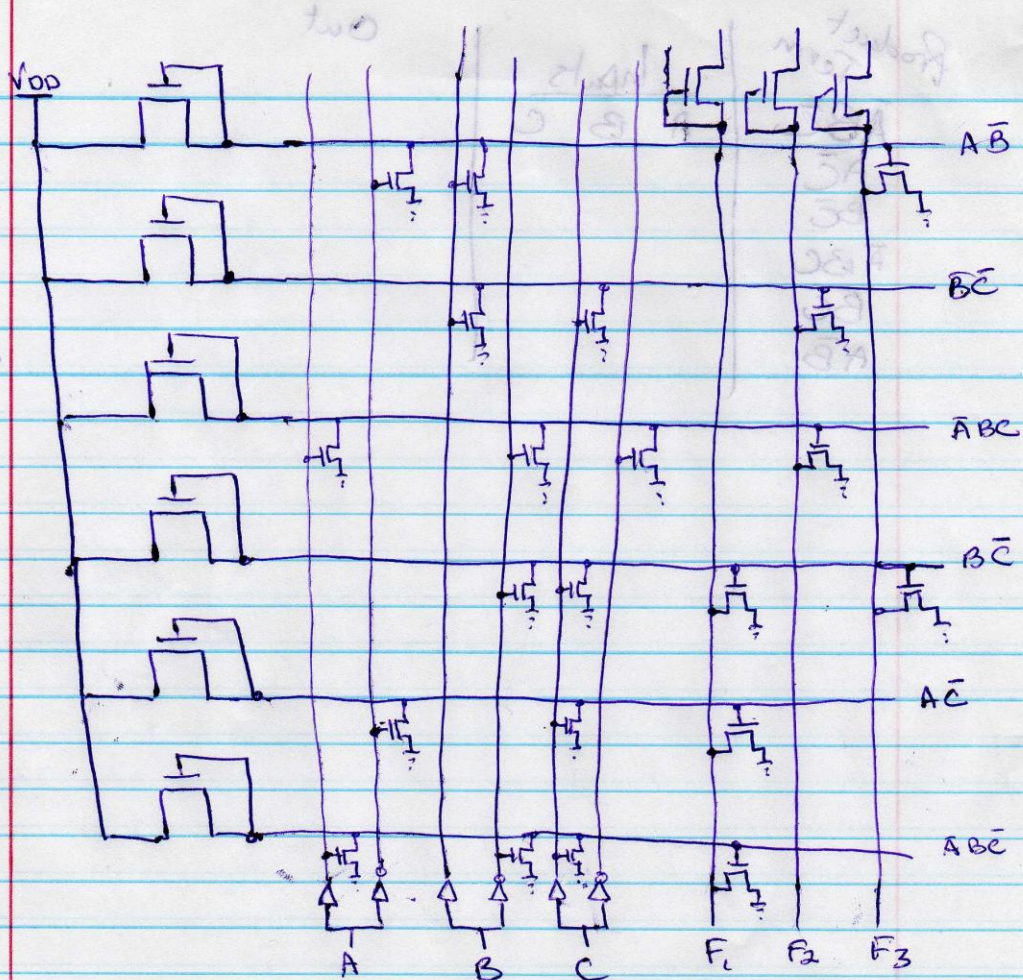 VDD
A B̅
B̅ C̅
A̅ B C
B C̅
A C̅
A̅ B C̅
A B C F₁ F₂ F₃